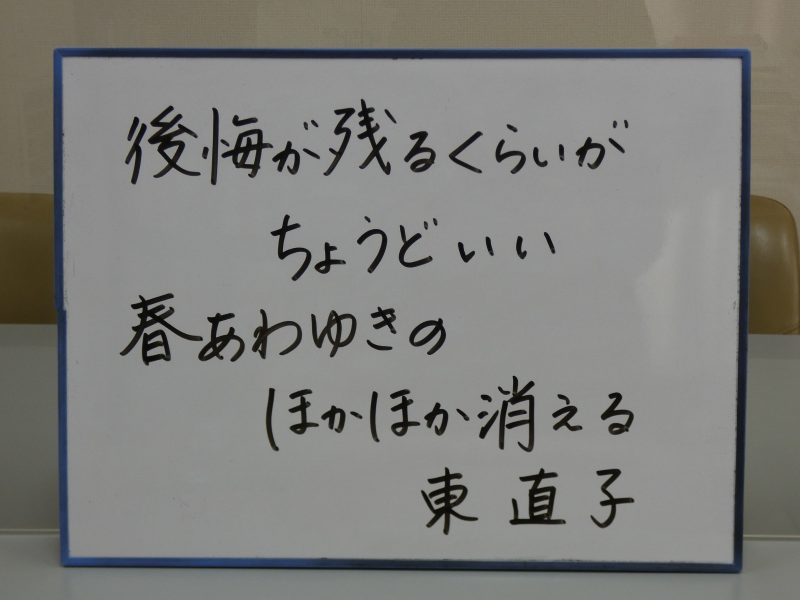 後悔が残るくらいが
ちょうどいい
春あわゆきの
ほかほか消える
東直子